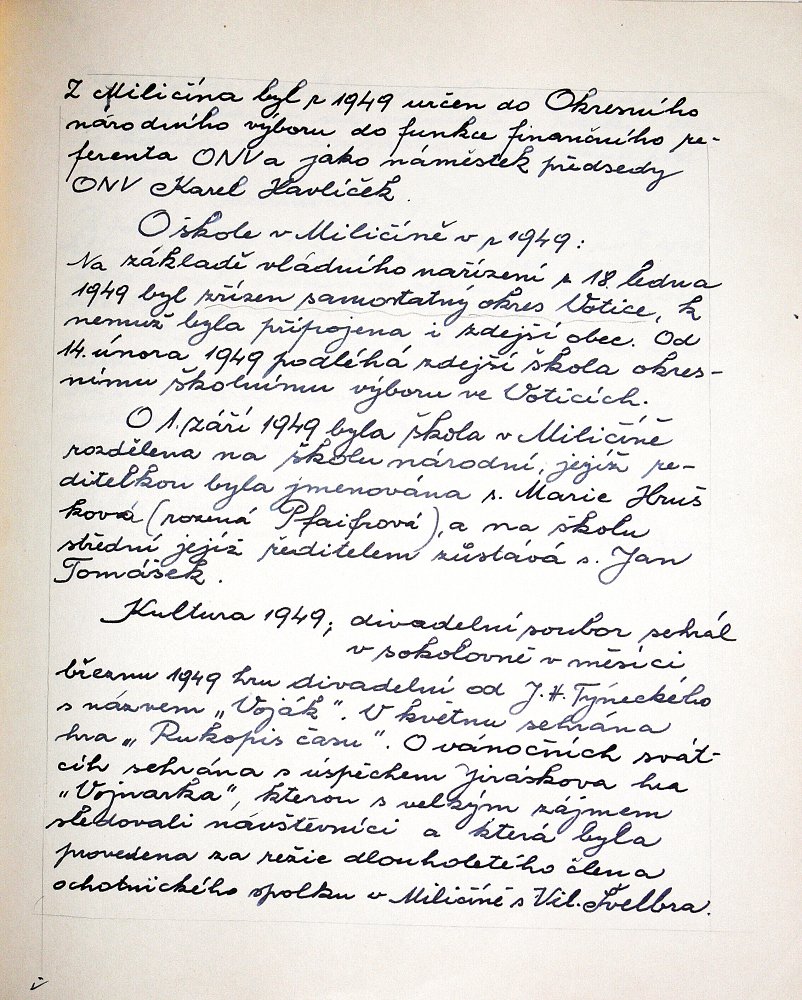 Z Miličína byl r 1949 určen do Okresního
národního výboru do funkce finančního re-
ferenta ONV a jako náměstek předsedy
ONV Karel Havlíček.
O škole v Miličíně v r 1949:
Na základě vládního nařízení z 18. ledna
1949 byl zřízen samostatný okres Votice, k
nemuž byla připojena i zdejší obec. Od
14. února 1949 podléhá zdejší škola okres-
nímu školnímu výboru ve Voticích.
O 1. září 1949 byla škola v Miličíně
rozdělena na školu národní, jejíž ře-
ditelkou byla jmenována s. Marie Hruš
kova (rozená Pfaifrová), a na školu
střední jejíž ředitelem zůstává s. Jan
Tomášek.
Kultura 1949; divadelní soubor sehrál
v sokolovně v měsíci
březnu 1949 hru divadelní od J. H. Týneckého
s názvem „Voják". V květnu sehrána
hra „Rukopis času". O vánočních svát-
cíh sehrána s úspěchem Jiráskova hra
„Vojnarka", kterou s velkým zájmem
sledovali návštěvníci a která byla
provedena za režie dlouholetého člena
ochotnického spolku v Miličíně s Vil. Švelbra.